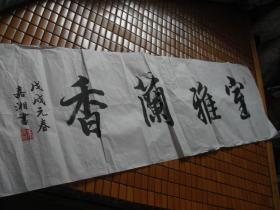 室雅蘭香
戊戌元春
嘉湘書